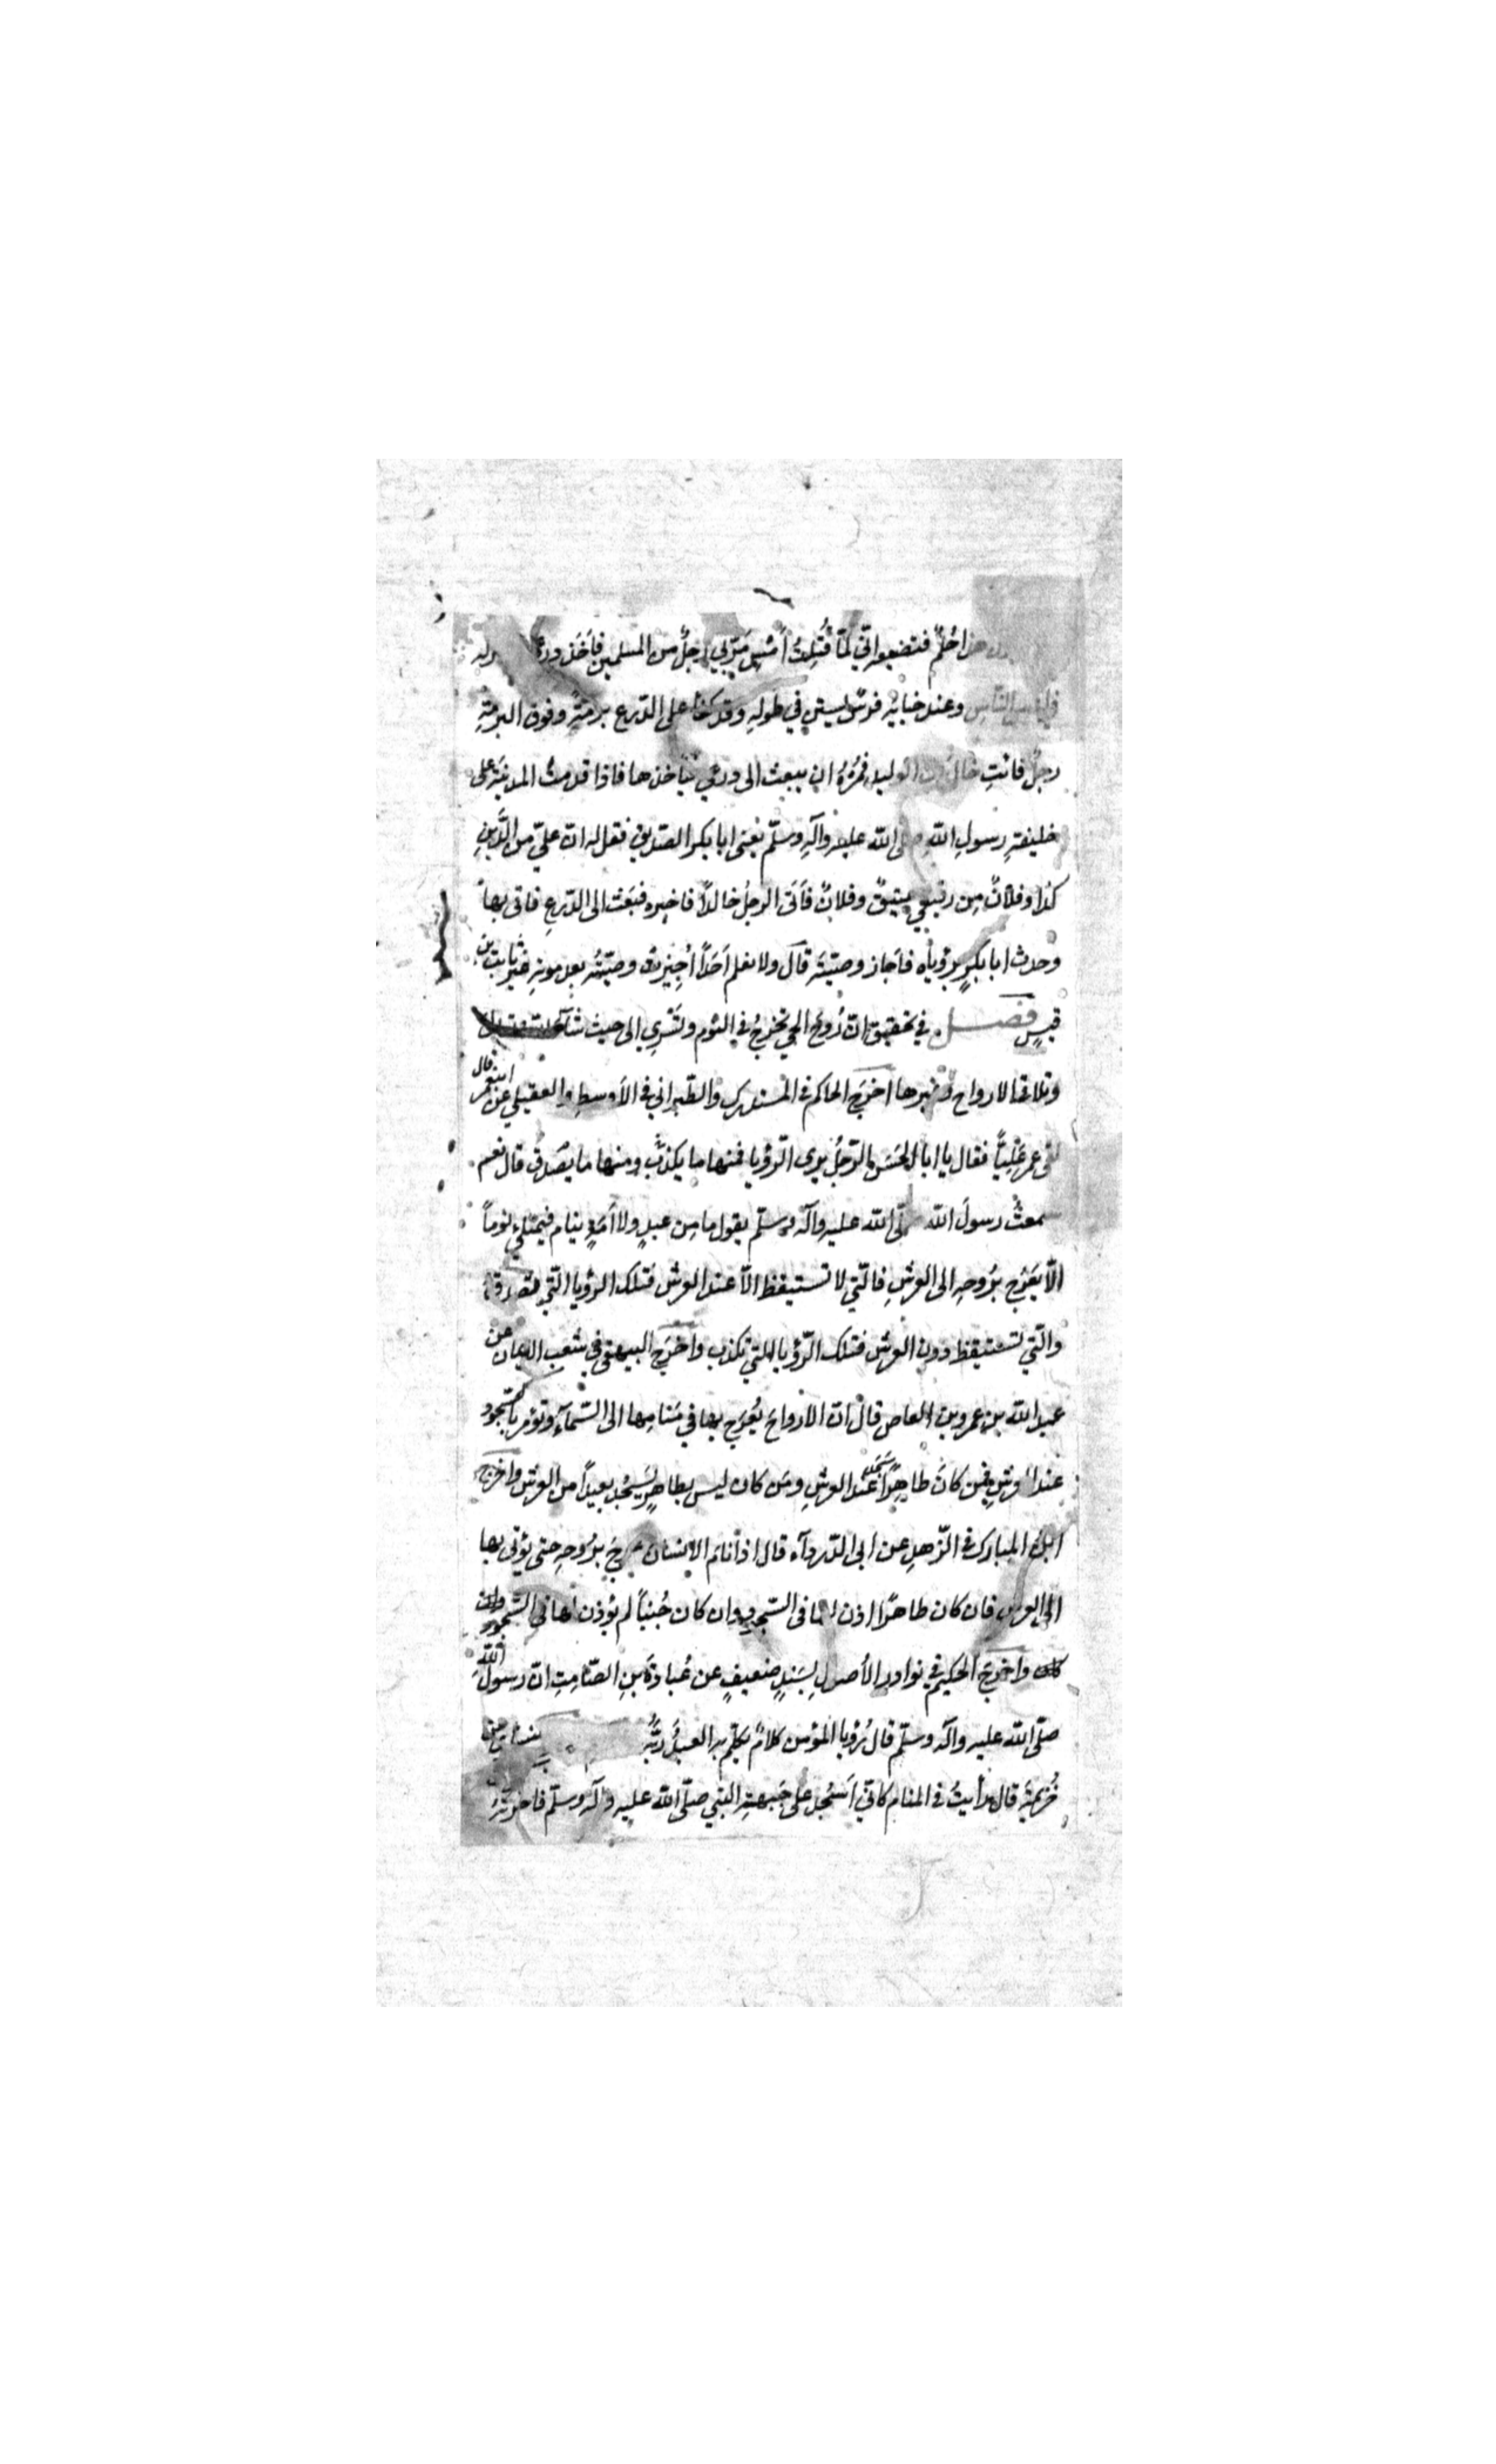 هذا حُلمٌ فتضيعه انّي لمّا قُتِلتُ أَمْسِ مَرَّ بي رجلٌ من المسلمين فأخَذ درعي
الناسِ وعند خبائِه فرسٌ يستن في طولهِ وقد كفأ على الدّرع برمةً وفوق البرمةِ
رجلٌ فائتِ خالدَ بن الوليد فمُرْهُ ان يبعث الى درعي فيأخذها فاذا قدمت المدينةَ على
خليفةِ رسولِ الله صلى الله عليه وآلهِ وسلّم يعنى ابا بكر الصديق فقل له انّ عليّ من الدَّينِ
كذا وفلانٌ مِن رقيقي عتيقٌ وفلانٌ فَأَتَى الرجلُ خالدًا فاخبره فبَعَث الى الدّرعِ فاتى بها
وحدث ابا بكرٍ برؤياه فأجاز وصيّتَه قال ولا نعلم اَحَدًا اُجِيزت وصيّتُه بعد موته غير ثابت بن
قيسٍ فصل في تحقيق انّ رُوحَ الحي تخرجُ في النوم وتَسْرِي الى حيث شآءت
وتلاقى الارواح وغيرها اخرَجَ الحاكم في المستدرك والطّبراني في الأوسطِ والعقيلي عن ابن عمر قال
لقى عمر عَليًّا فقال يا ابا الحسَن الرّجلُ يرى الرّؤيا فمنها ما يكذبُ ومنها ما يصدقُ قال نعم
سمعتُ رسولَ الله صلّى الله عليه وآله وسلّم يقول ما مِن عبدٍ ولا اَمَةٍ ينام فيمتلئ نوماً
الّا يَعْرُج برُوحِه الى العرشِ فالّتي لا تستيقظ الّا عند العرش فتلك الرؤيا الّتي تصدق
والّتي تستيقظ دون العرش فتلك الرّؤيا الّتي تكذب واخرَج البيهقي في شعب الايمان عن
عبد الله بن عمرو بن العاص قال انّ الارواحَ يُعرَج بها في مَنامِها الى السّمآءِ وتؤمر بالسّجود
عند العرشِ فمن كانَ طاهِرًا سَجَدَ عند العرشِ ومَن كان ليس بطاهرٍ يَسجُد بعيداً من العرش واخرج
ابنُ المبارك في الزّهدِ عن ابى الدّردآء قال اذا نام الانسان عرج برُوحِهِ حتى يؤتى بها
الى العرش فان كان طاهرًا اذن لها في السّجودِ وان كان جُنباً لم يؤذن لها في السّجود
واخرَجَ الحكيم في نوادر الأصولِ بسَندٍ ضعيفٍ عن عُبادةَ بنِ الصّامِتِ انّ رسولَ الله
صلّى الله عليه وآله وسلّم قال رُؤيا المؤمن كلامٌ يكلّم به العبدُ ربَّه
خُزيمةَ قال رأيتُ في المنام كانّي اَسْجُد على جَبهةِ النبي صلّى الله عليه وآله وسلّم فاخبرته